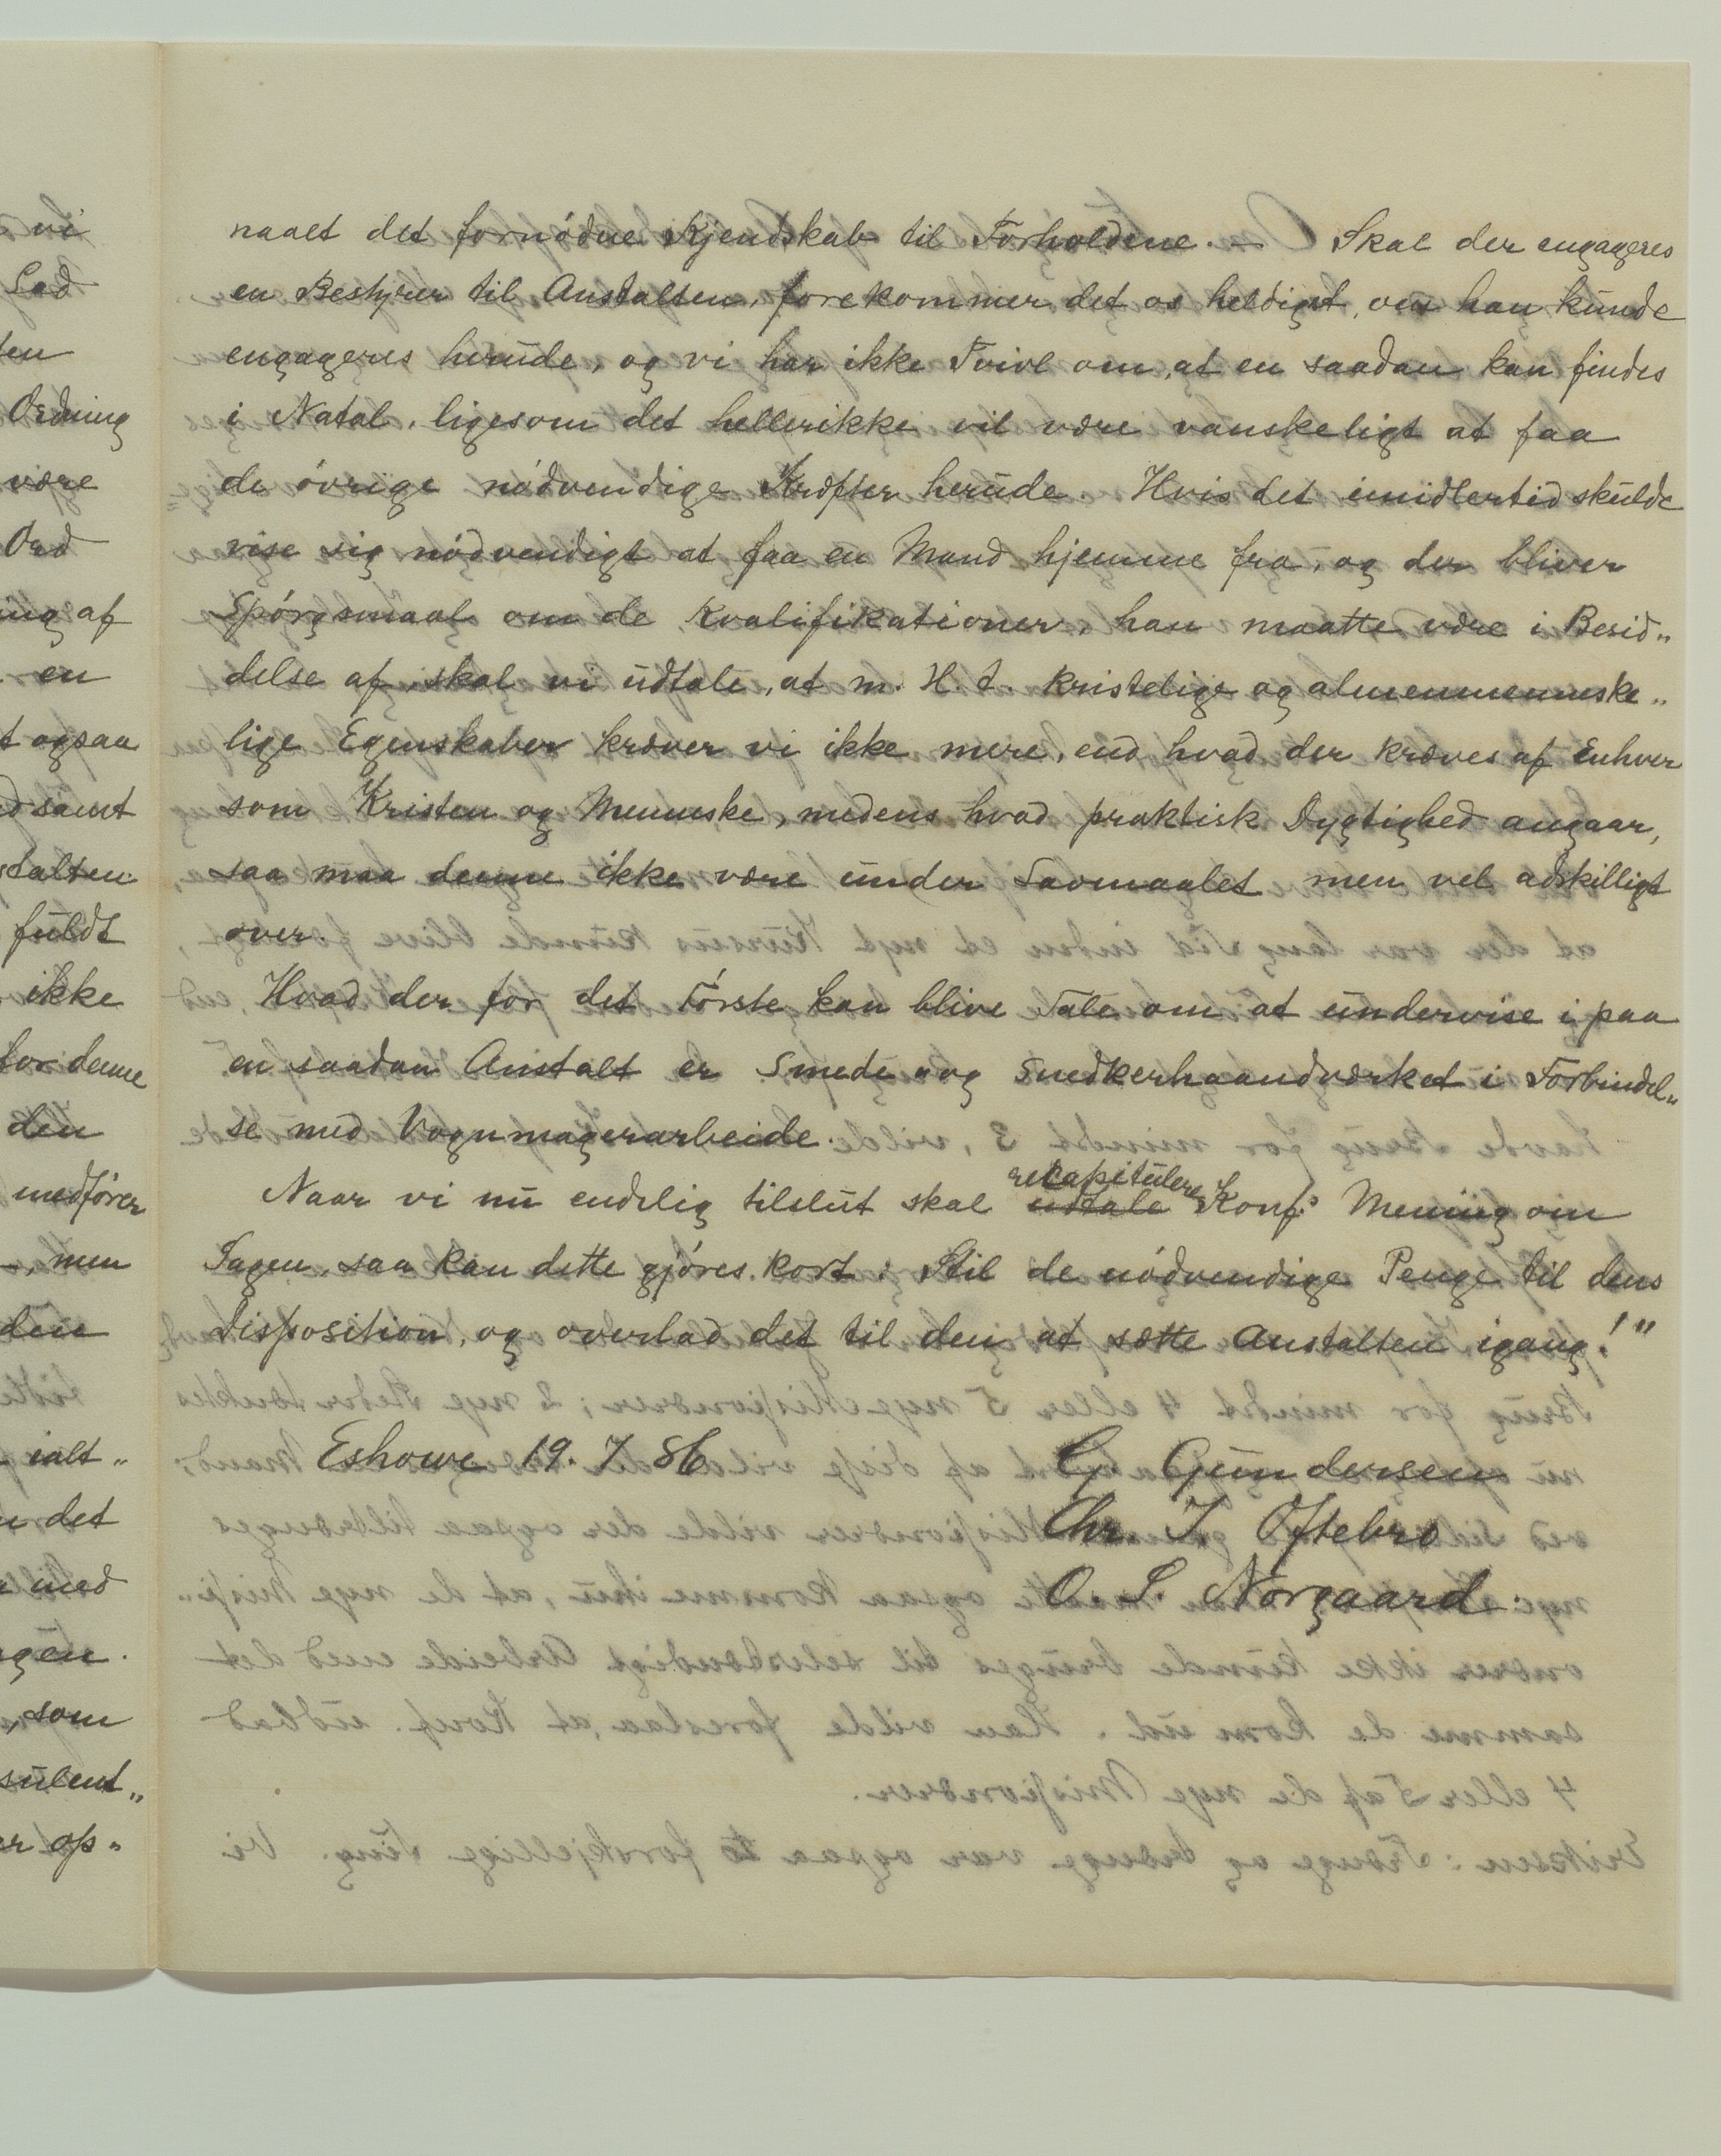 vi
Lad
ten
Ordning
være
Ord
ing af
en
t ogsaa
d samt
stalten
fuldt
ikke
for denne
den
medfører
, men
den
ialt„
n det
med
gen.
, som
sulent„
er op„
naaet det fornødne Kjendskab til Forholdene. — Skal der engageres
en Bestyrer til Anstalten, forekommer det os heldigst, om han kunde
engageres herude, og vi har ikke Tvivl om, at en saadan kan findes
i Natal, ligesom det hellerikke vil være vanskeligt at faa
de øvrige nødvendige Kræfter herude. Hvis det imidlertid skulde
vise sig nødvendigt at faa en Mand hjemme fra, og der bliver
Spørgsmaal om de Kvalifikationer, han maatte være i Besid„
delse af, skal vi udtale, at m. H. t. kristelige og almenmenneske„
lige Egenskaber kræver vi ikke mere, end hvad der kræves af Enhver
som Kristen og Menneske, medens hvad praktisk Dygtighed angaar,
saa maa denne ikke være under Savmaalet men vel adskilligt
over.
Hvad der for det Første kan blive Tale om at undervise i paa
en saadan Anstalt er Smede- og Snedkerhaandværket i Forbindel„
se med Vognmagerarbeide.
Naar vi nu endelig tilslut skal udtale recapitulere Konf.s Mening om
Sagen, saa kan dette gjøres kort: Stil de nødvendige Penge til dens
Disposition, og overlad det til den at sætte Anstalten igang!"
Eshowe 19. 7 86 G Gundersen
Chr. T. Oftebro
O. S. Norgaard.